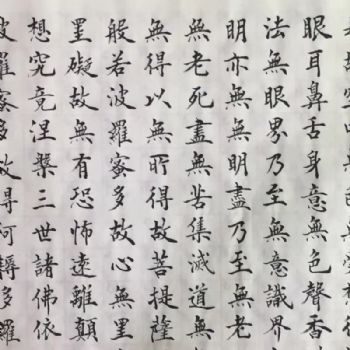 是故空中無色無受想行
眼耳鼻舌身意無色聲香
法無眼界乃至無意識界
明亦無無明盡乃至無老
無老死盡無苦集滅道無
無得以無所得故菩提薩
般若波羅蜜多故心無罣
罣礙故無有恐怖遠離顛
想究竟涅槃三世諸佛依
波羅蜜多故得阿耨多羅